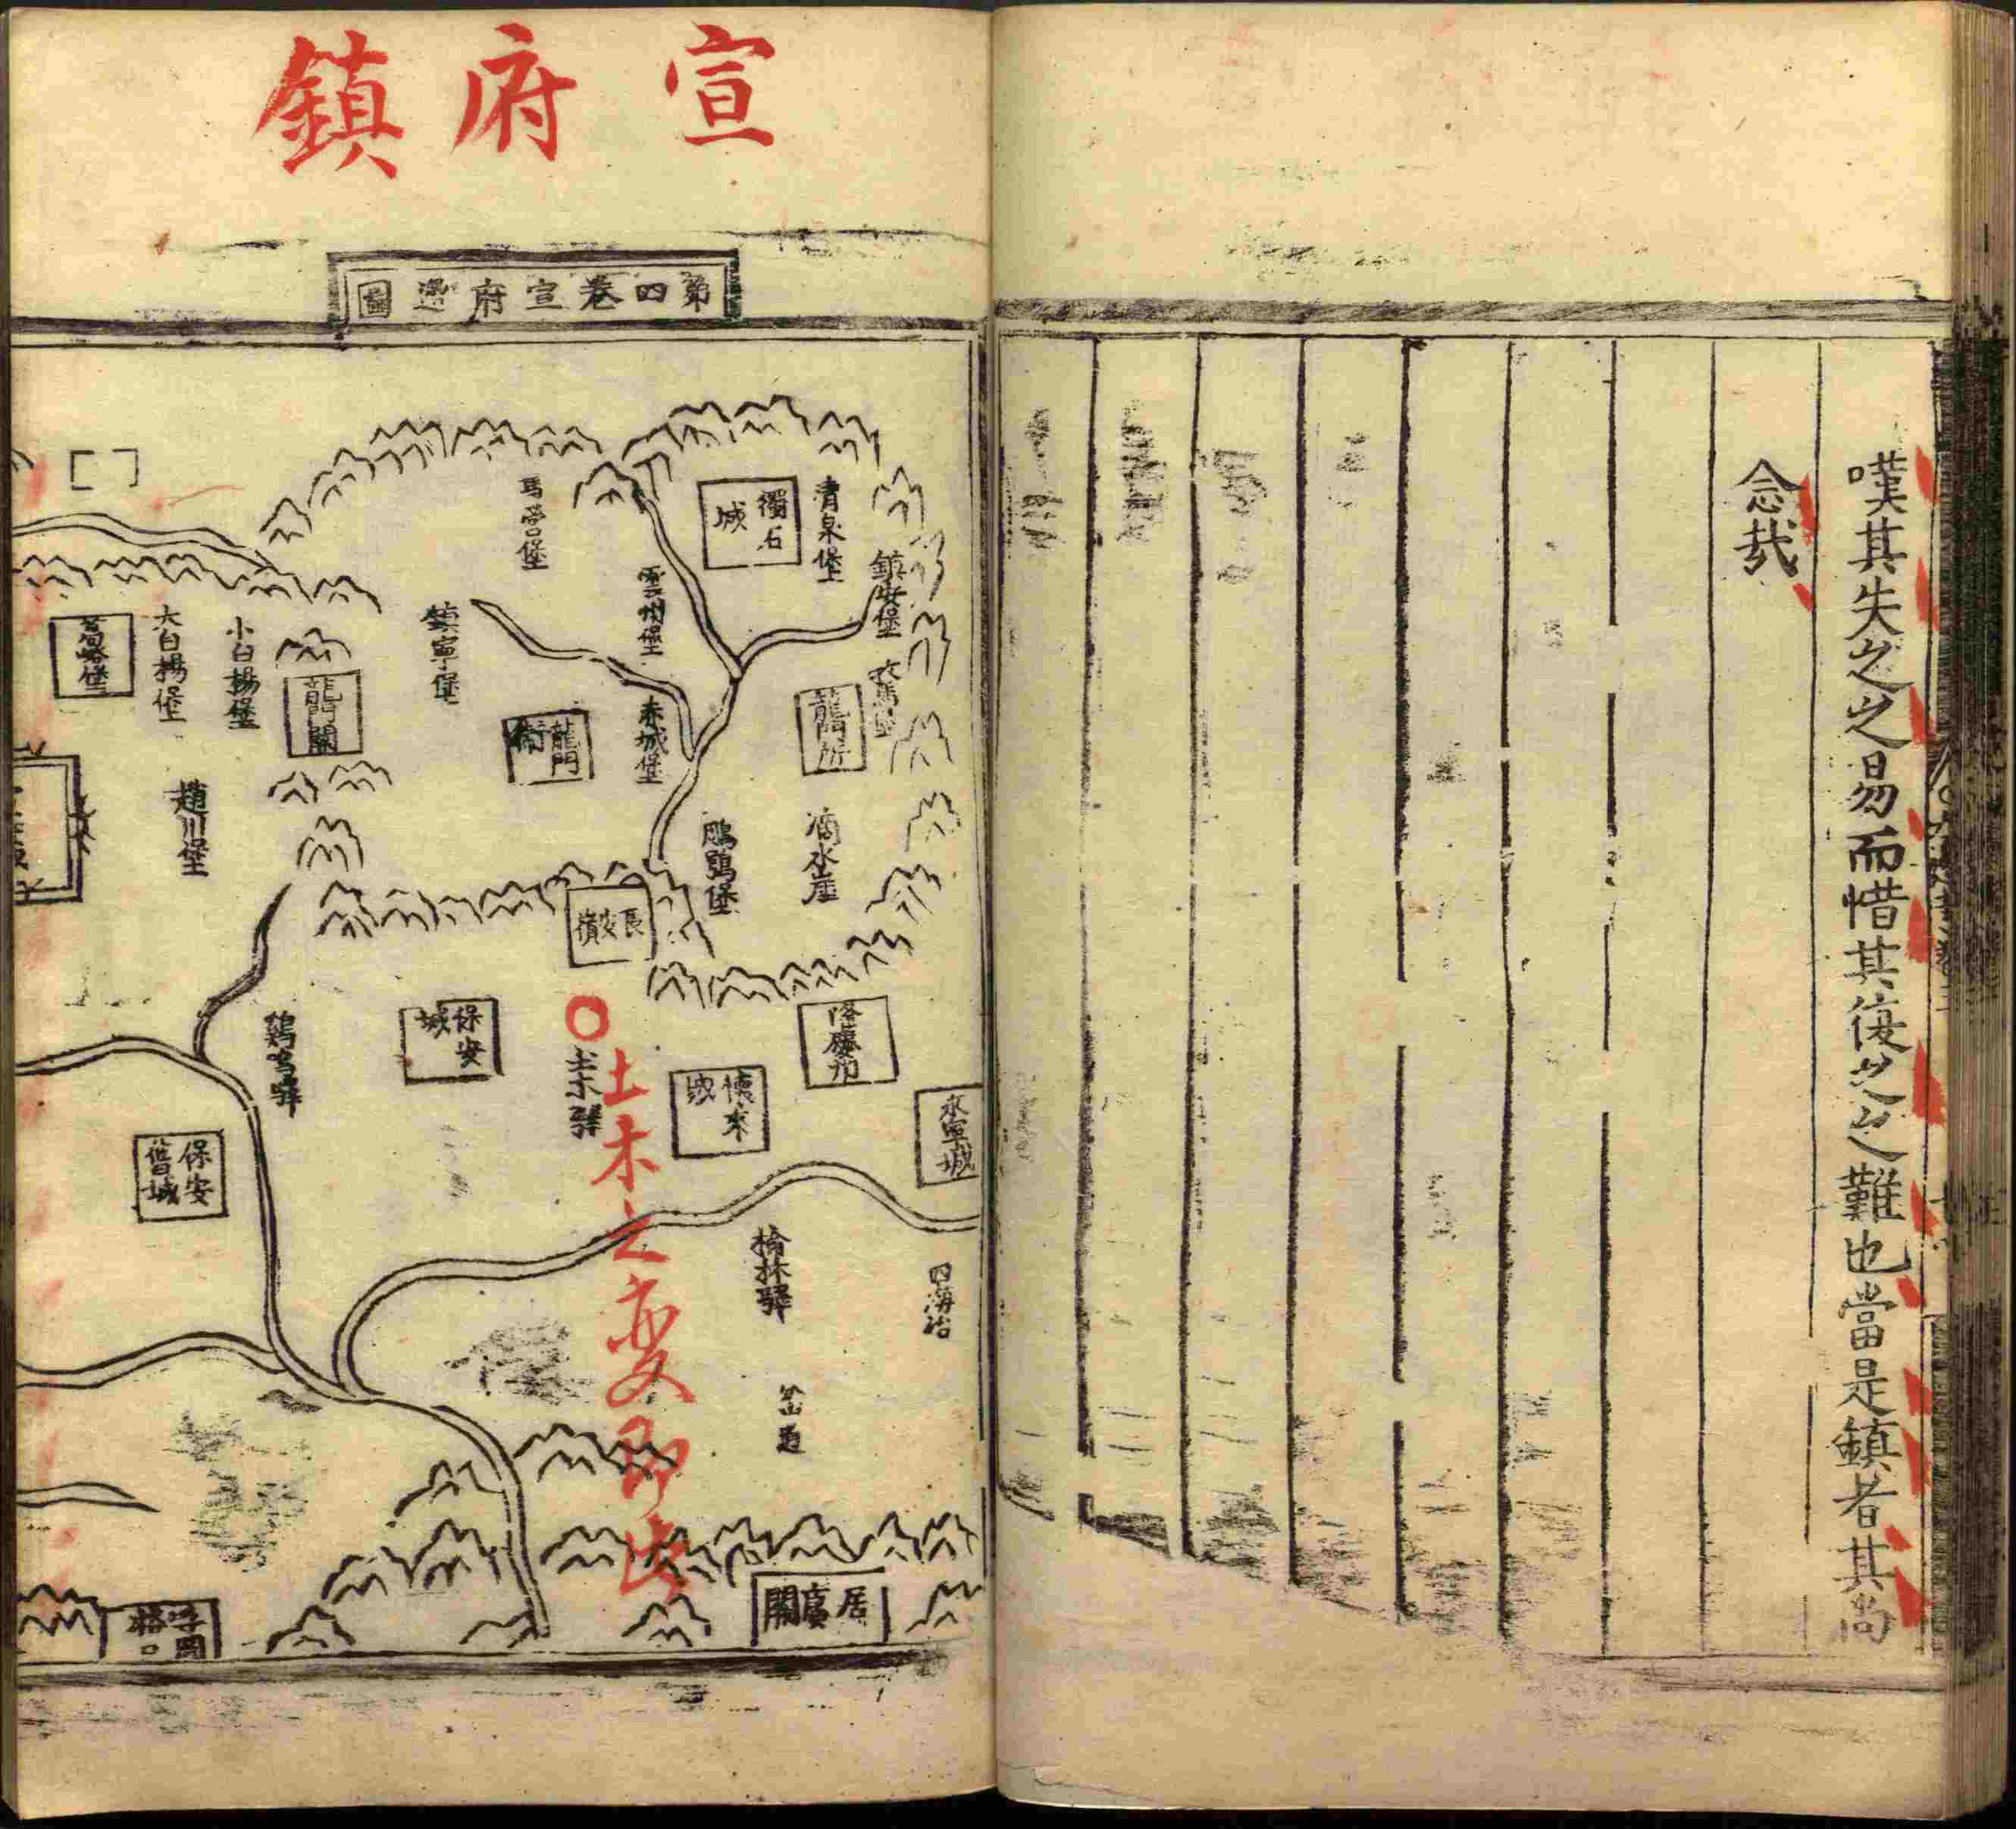 嘆其失之之易而惜其復之之難也當是鎮者其尚
念哉
宣府鎮
第四卷宣府邊圖
清泉堡
獨石城
馬營堡
鎮安堡
雲州堡
鎮寧堡
小白楊堡
大白楊堡
葛峪堡
龍門所
赤城堡
龍門衛
龍門關
滴水崖
鵰鶚堡
趙川堡
長安嶺
隆慶州
永寧城
懷來城
土木驛
保安城
雞鳴驛
保安舊城
土木之变即此
榆林驛
四海冶
岔道
居庸關